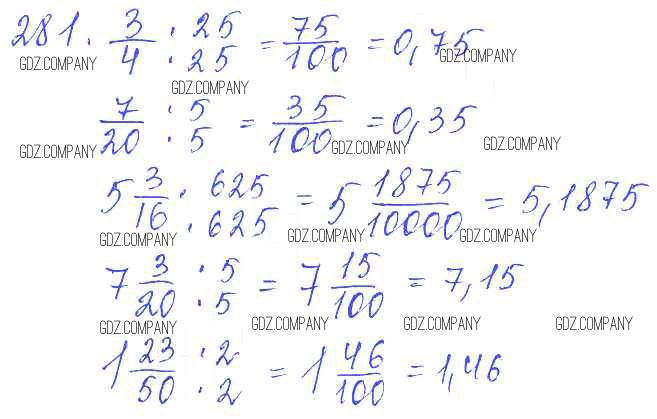 281. 3/4 · 25/25 = 75/100 = 0,75
GDZ.COMPANY GDZ.COMPANY
GDZ.COMPANY
7/20 · 5/5 = 35/100 = 0,35
GDZ.COMPANY GDZ.COMPANY GDZ.COMPANY
5 3/16 · 625/625 = 5 1875/10000 = 5,1875
GDZ.COMPANY GDZ.COMPANY GDZ.COMPANY
7 3/20 · 5/5 = 7 15/100 = 7,15
GDZ.COMPANY GDZ.COMPANY GDZ.COMPANY GDZ.COMPANY
1 23/50 · 2/2 = 1 46/100 = 1,46